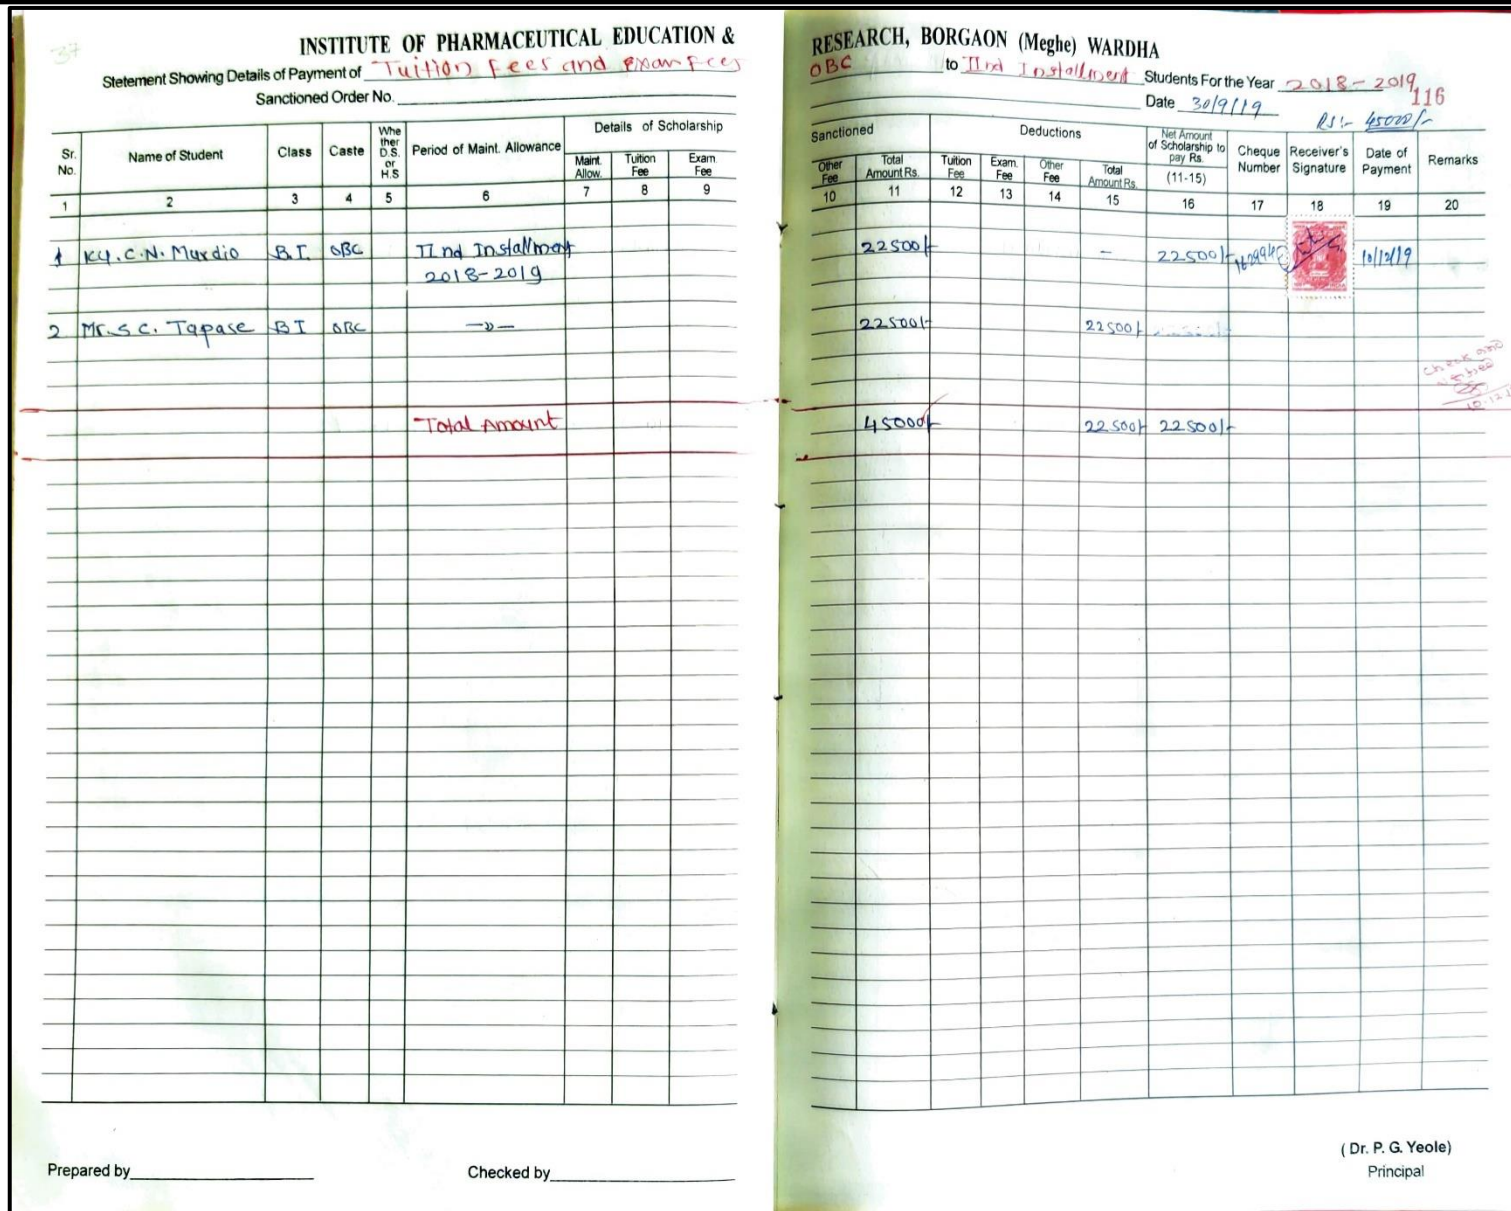 37
INSTITUTE OF PHARMACEUTICAL EDUCATION &
Stetement Showing Details of Payment of Tuition Fees and Exam Fees
Sanctioned Order No.
Sr. No. Name of Student Class Caste Whe ther D.S. or H.S Period of Maint. Allowance Details of Scholarship
Maint. Allow. Tuition Fee Exam. Fee
1 2 3 4 5 6 7 8 9
1 Ku. C.N. Murdio B.I. OBC IInd Installment
2018-2019
2 Mr. S C. Tapase BI OBC —〃—
Total Amount
Prepared by
Checked by
RESEARCH, BORGAON (Meghe) WARDHA
OBC to IInd Installment Students For the Year 2018-2019
116
Date 30/9/19
RS:- 45000/-
Sanctioned Deductions Net Amount of Scholarship to pay Rs. (11-15) Cheque Number Receiver's Signature Date of Payment Remarks
Other Fee Total Amount Rs. Tuition Fee Exam. Fee Other Fee Total Amount Rs.
10 11 12 13 14 15 16 17 18 19 20
22500/- - 22500/- 10/12/19
22500/- 22500/-
Check and
45000/- 22500/- 22500/-
( Dr. P. G. Yeole)
Principal